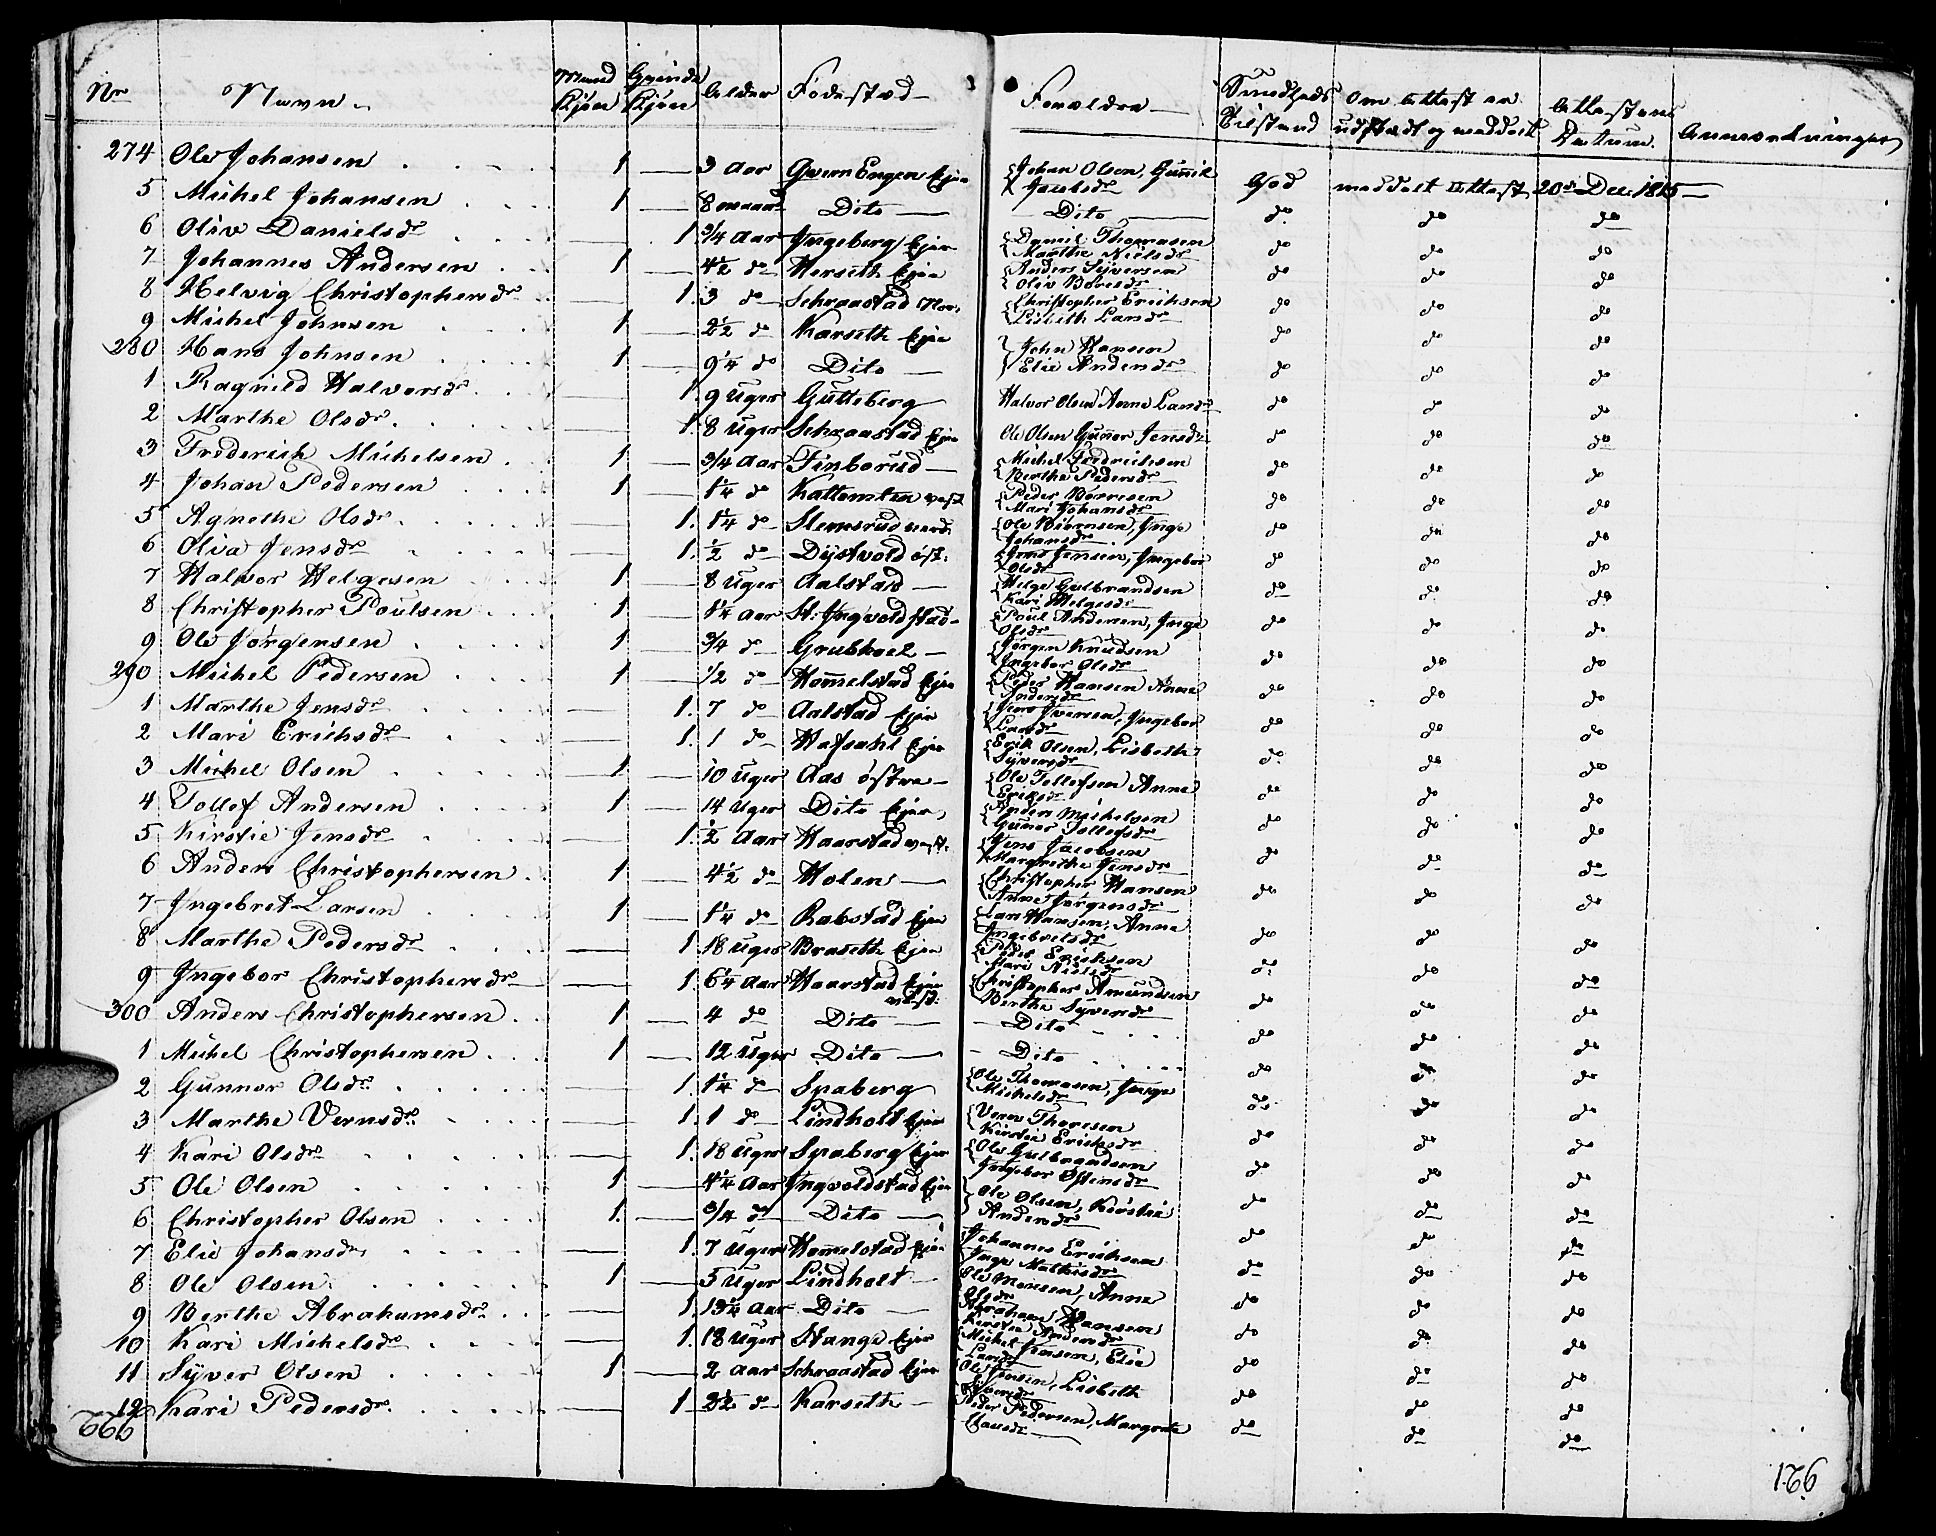 Nr Navn Mand Kjøn Qvinde Kjøn Alder Födestæd Forældre Sundheds Tilstand Om Attest er udstædt og meddelt Attestens Datum Anmærkninger
274 Ole Johansen 1 3 Aar Qvern Engen Ejer Johan Olsen, Gunnild Jacobsdr God meddelt Attest 20de Dec. 1815
5 Michel Johansen 1 8 maan. Dito Dito do do do
6 Oliv Danielsdr 1 3/4 Aar Ingeberg Ejer Daniel Thomasen Marthe Nielsdr do do do
7 Johannes Andersen 1 4 1/2 do Herseth Ejer Anders Syversen Oliv Boresdr do do do
8 Helvig Christophersdr 1 3 do Schraastad Christopher Erichsen Lisbeth Larsdr do do do
9 Michel Johnsen 1 2 1/2 do Karseth Ejer do do do
280 Hans Johnsen 1 9 1/4 do Dito John Hansen Elie Andersdr do do do
1 Ragnild Halvorsdr 1 9 Uger Gutteberg Halvor Olsen Anne Larsdr do do do
2 Marthe Olsdr 1 8 Uger Schraastad Ejer Ole Olsen Gunnor Jensdr do do do
3 Frederich Michelsen 1 3/4 Aar Finborud Michel Fredrichsen Berthe Pedersdr do do do
4 Johan Pedersen 1 1 1/4 do Kattomten vest Peder Börresen Mari Johansdr do do do
5 Agnethe Olsdr 1 1 1/4 do Slemsrud nord. Ole Biörnsen, Inge Johansdr do do do
6 Olia Jensdr 1 1/2 do Dystvold öst. Jens Jensen, Ingebor Olsdr do do do
7 Halvor Helgesen 1 8 Uger Aalstad Helge Gulbrandsen Kari Helgesdr do do do
8 Christopher Poulsen 1 1 1/4 Aar St: Ingvoldstad Poul Andersen, Inge Olsdr do do do
9 Ole Jörgensen 1 3/4 do Grubhoel Jörgen Knudsen Ingebor Olsdr do do do
290 Michel Pedersen 1 1/2 do Hommelstad Ejer Peder Hansen Anne Andersdr do do do
1 Marthe Jensdr 1 7 do Aalstad Ejer Jens Iversen, Ingebor Larsdr do do do
2 Mari Erichsdr 1 1 do Hafsahl Ejer Erik Olsen, Lisbeth Syversdr do do do
3 Michel Olsen 1 10 Uger Aas östre Ole Tollefsen Anne Eriksdr do do do
4 Tollef Andersen 1 14 Uger Dito Ejer Anders Michelsen Gunnor Tollefsdr do do do
5 Kirstie Jensdr 1 1/2 Aar Haarstad vest. Jens Jacobsen Margrethe Jensdr do do do
6 Anders Christophersen 1 4 1/2 do Holen Christopher Hansen Anne Jörgensdr do do do
7 Ingebret Larsen 1 1 1/4 do Rabstad Ejer Lars Hansen, Anne Ingebretsdr do do do
8 Marthe Pedersdr 1 18 Uger Braseth Ejer Peder Erichsen Mari Nielsdr do do do
9 Ingebor Christophersdr 1 6 1/4 Aar Haarstad Ejer vest. Christopher Amundsen Berthe Syversdr do do do
300 Anders Christophersen 1 4 do Dito Dito do do do
1 Michel Christophersen 1 12 Uger Dito Dito do do do
2 Gunnor Olsdr 1 1 1/4 do Spaberg Ole Thomasen, Inge Michelsdr do do do
3 Marthe Vernsdr 1 1 do Lindholt Ejer Vern Thoresen Kirstie Erichsdr do do do
4 Kari Olsdr 1 18 Uger Spaberg Ejer Ole Gulbrandsen Ingebor Ostensdr do do do
5 Ole Olsen 1 4 1/4 Aar Ingvoldstad Ejer do do do
6 Christopher Olsen 1 3/4 do Dito Ole Olsen, Kirstie Andersdr do do do
7 Elie Johansdr 1 7 Uger Hommelstad Ejer Johannes Erichsen Inge Mathisdr do do do
8 Ole Olsen 1 5 Uger Lindholt Ole Monsen, Anne Olsdr do do do
9 Berthe Abrahamsdr 1 1 3/4 Aar Dito Abraham Hansen Kirstie Andersdr do do do
10 Kari Michelsdr 1 18 Uger Stange Ejer Michel Jensen, Elie Larsdr do do do
11 Syver Olsen 1 2 Aar Schraastad Ejer Ole Jensen, Lisbeth Syversdr do do do
12 Kari Pedersdr 1 2 1/2 do Karseth Peder Pedersen, Margrete Clausdr do do do
126